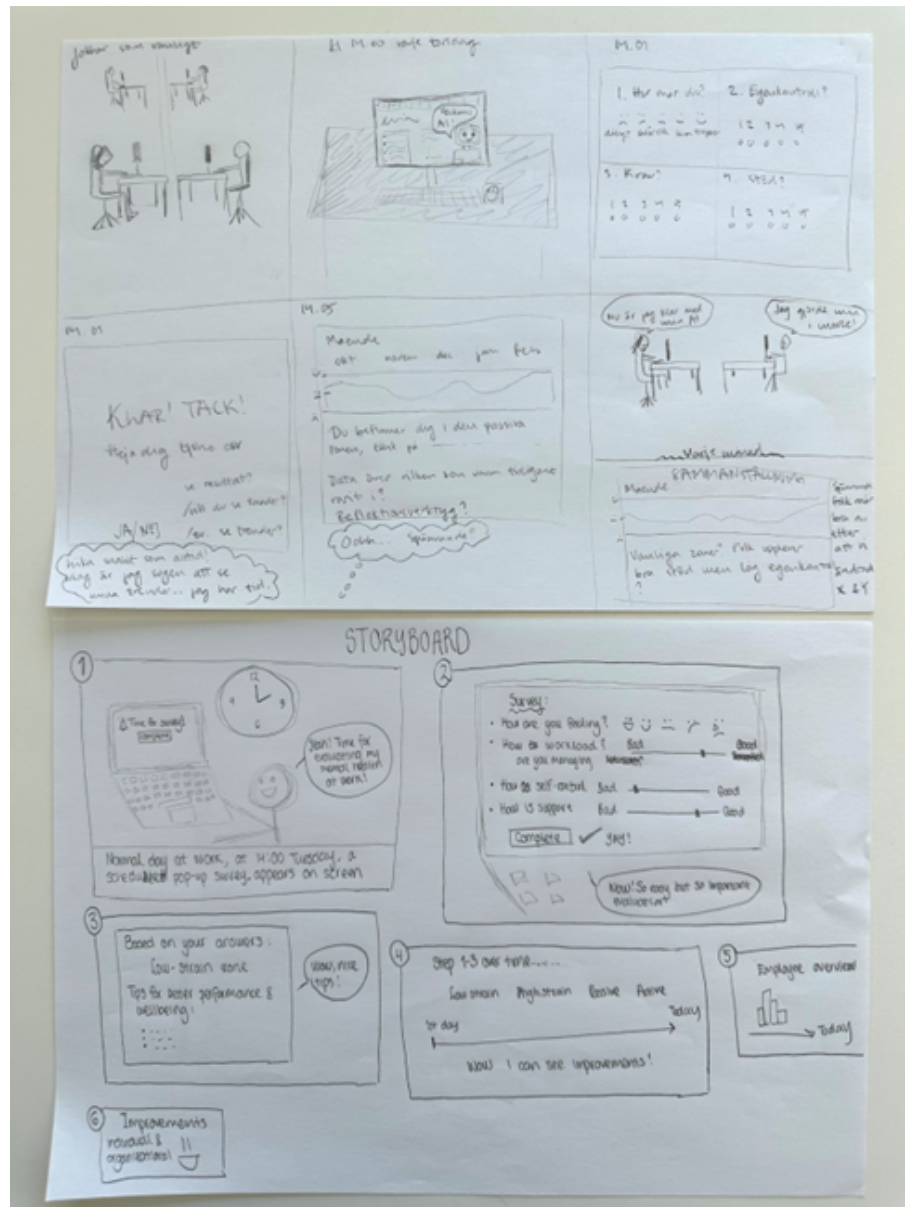 Jobbar som vanligt
kl 14.00 varje tisdag
14.01
1. Hur mår du?
2. Egenkontroll?
1 2 3 4 5
3. Krav?
1 2 3 4 5
4. Stöd?
1 2 3 4 5
14.01
KLAR! TACK!
Hejdå
se resultat?
JA/NEJ
se trender?
lika snabbt som alltid!
idag är jag sugen att se
mina trender... jag har tid.
14.05
Mående
okt novem dec jan feb
Du befinner dig i den passiva
zonen, tänk på
Data över vilken zon man tidigare
varit i?
Reflektionsverktyg?
Oohh... "Spännande"
Nu är jag klar med
min AI!
Jag gjorde min
i morse!
Varje månad
SAMMANSTÄLLNING
Mående
Vanliga zoner Folk upplever
bra stöd men låg egenkontroll
?
Spännande
folk mår
bra nu
efter
att vi
ändrade
X & Y
STORYBOARD
1
12
3
6
9
Time for survey!
Complete
Yeah! Time for
evaluating my
mental health
at work!
Normal day at work, at 14:00 Tuesday, a
scheduled pop-up survey appears on screen
2
Survey:
• How are you feeling?
• How is workload? Bad Good
are you managing
• How is self-control Bad Good
• How is support Bad Good
Complete YAY!
Wow! So easy but so important
evaluation!
3
Based on your answers:
Low-strain zone
Tips for better performance &
wellbeing:
Wow, nice
tips!
4
Step 1-3 over time......
Low strain High strain Passive Active
1st day Today
Wow I can see improvements!
5
Employee overview
Today
6
Improvements
individual &
organizational